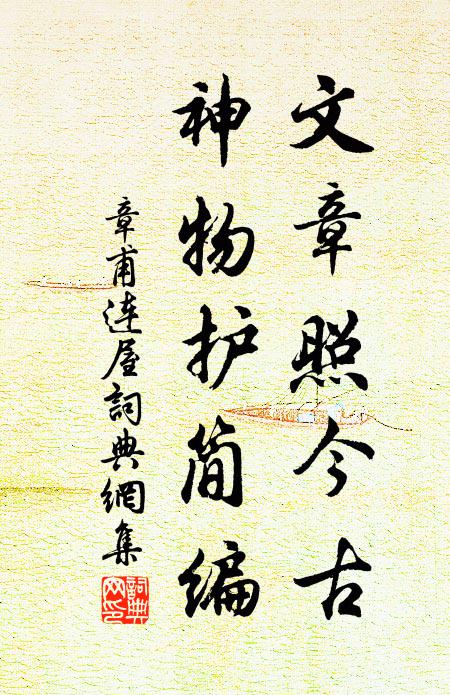 文章照今古
神物护简编
章甫達屋詞典網集
詞典
网印